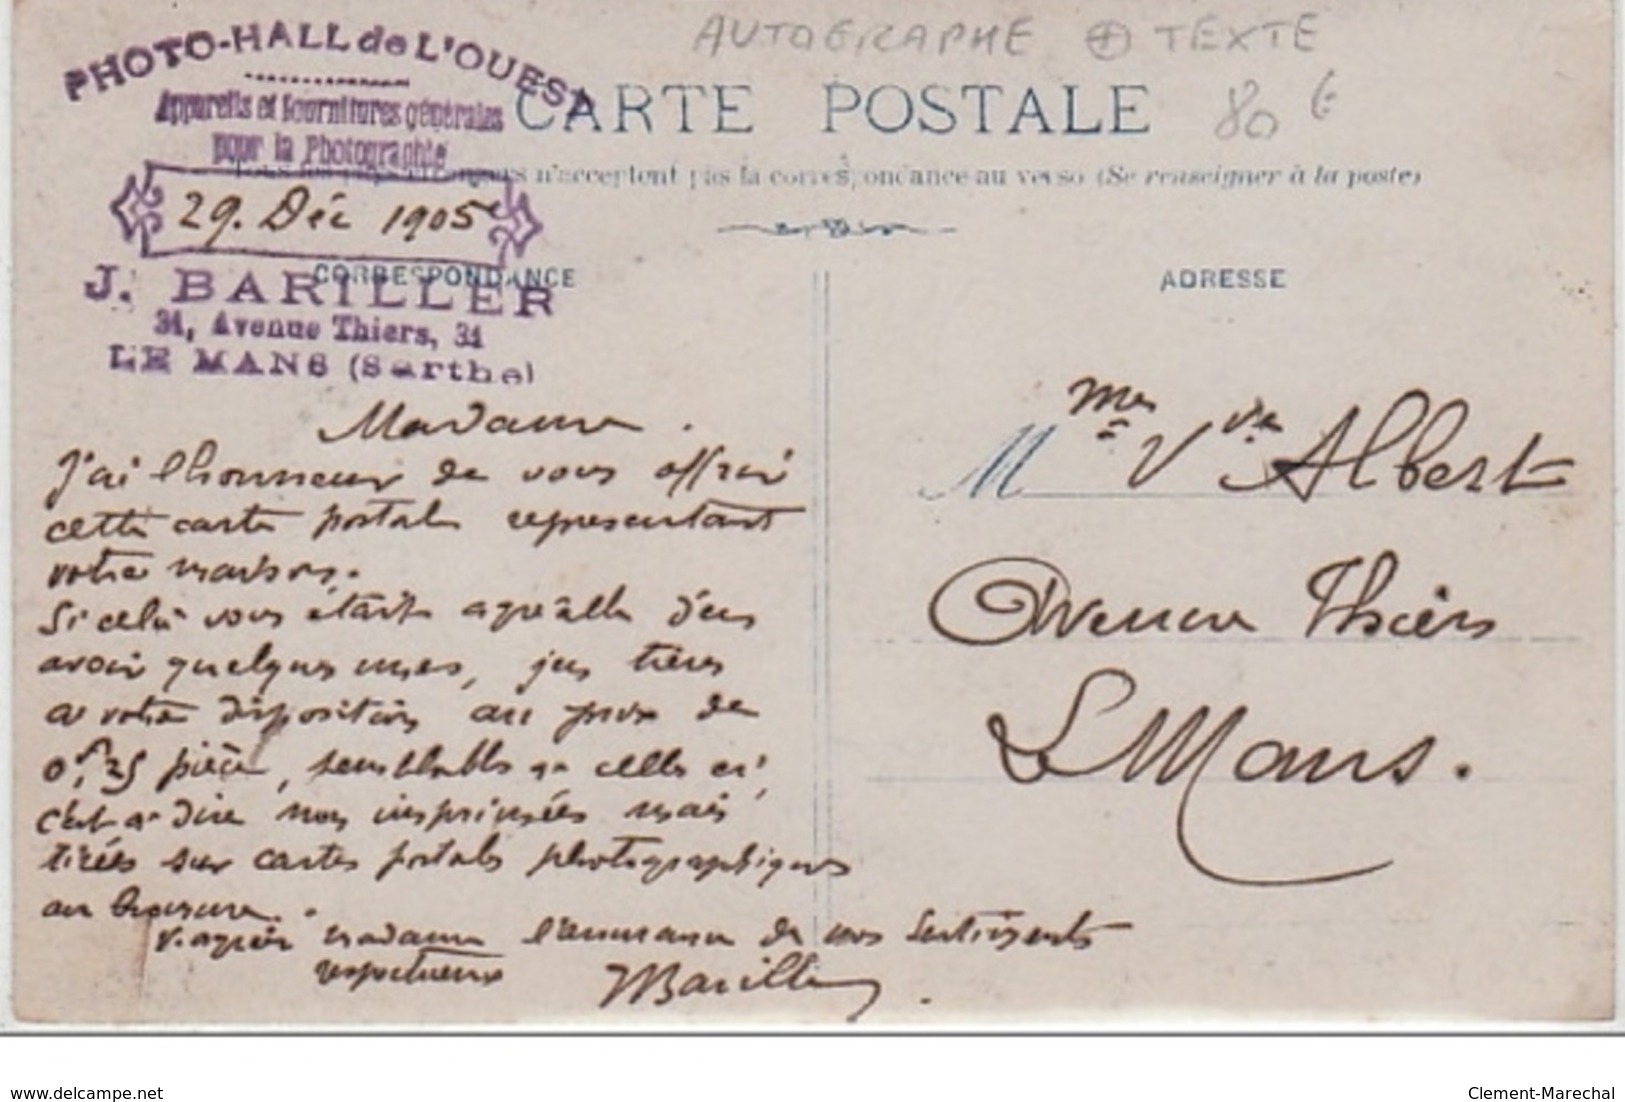 AUTOGRAPHE + TEXTE
80 €
PHOTO-HALL de L'OUEST
Appareils et fournitures générales
pour la Photographie
29. Déc 1905
J. BARILLER
31, Avenue Thiers, 31
LE MANS (Sarthe)
CARTE POSTALE
Tous les pays étrangers n'acceptent pas la correspondance au verso (Se renseigner à la poste)
CORRESPONDANCE
ADRESSE
Madame.
J'ai l'honneur de vous offrir
cette carte postale representant
votre maison.
Si celà vous était agréable d'en
avoir quelques unes, je les tiens
a votre disposition au prix de
pièce, semblable a celle ci,
c'est a dire non imprimées mais
tirées sur cartes postales photographiques
au bromure.
V. agréer madame l'assurance de mes sentiments
respectueux
JBariller
Mme Vve Albert
Avenue Thiers
Le Mans.
www.delcampe.net
Clement-Marechal